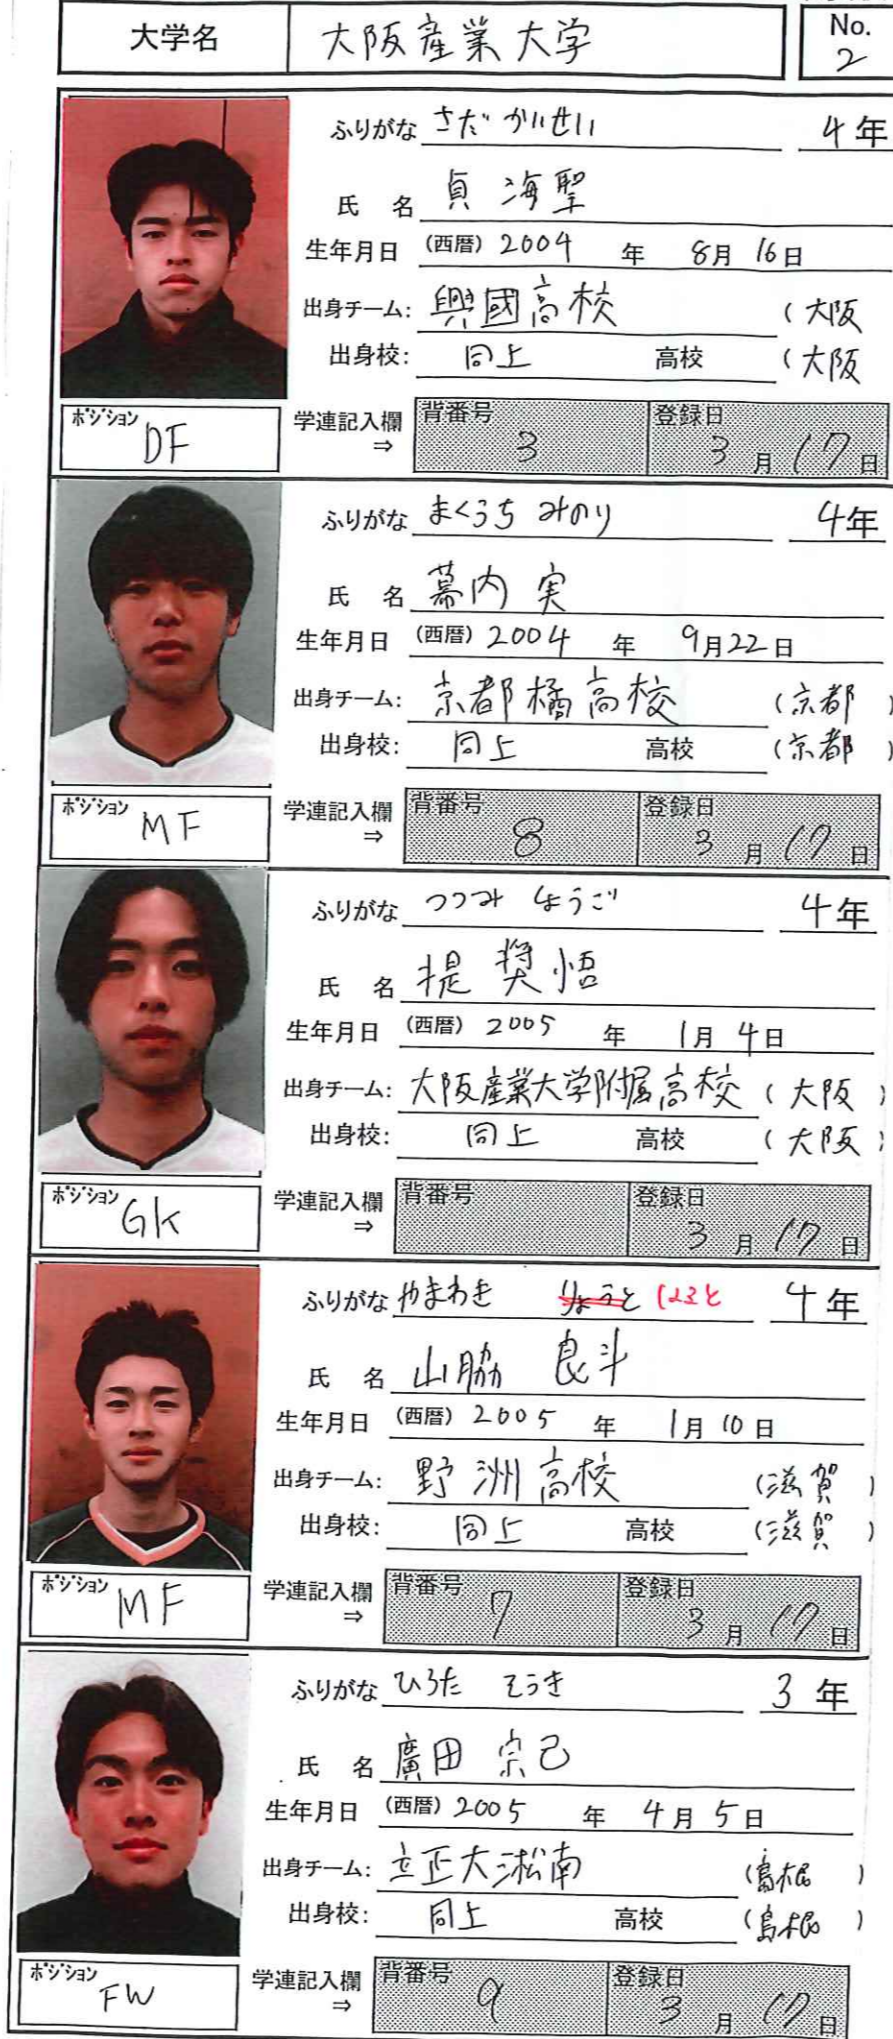 大学名 大阪産業大学 No. 2
ふりがな さだ かいせい 4年
氏 名 貞 海聖
生年月日 (西暦) 2004 年 8月 16日
出身チーム: 興國高校 (大阪
出身校: 同上 高校 (大阪
ポジション DF 学連記入欄 ⇒ 背番号 3 登録日 3月 17日
ふりがな まくうち みのり 4年
氏 名 幕内 実
生年月日 (西暦) 2004 年 9月22日
出身チーム: 京都橘高校 (京都)
出身校: 同上 高校 (京都)
ポジション MF 学連記入欄 ⇒ 背番号 8 登録日 3月 17日
ふりがな つつみ しょうご 4年
氏 名 堤 奨悟
生年月日 (西暦) 2005 年 1月 4日
出身チーム: 大阪産業大学附属高校 (大阪)
出身校: 同上 高校 (大阪)
ポジション GK 学連記入欄 ⇒ 背番号 登録日 3月 17日
ふりがな やまわき りょうと 4年
氏 名 山脇 良斗
生年月日 (西暦) 2005 年 1月 10日
出身チーム: 野洲高校 (滋賀)
出身校: 同上 高校 (滋賀)
ポジション MF 学連記入欄 ⇒ 背番号 7 登録日 3月 17日
ふりがな ひろた そうき 3年
氏 名 廣田 宗己
生年月日 (西暦) 2005 年 4月 5日
出身チーム: 立正大淞南 (島根)
出身校: 同上 高校 (島根)
ポジション FW 学連記入欄 ⇒ 背番号 9 登録日 3月 17日